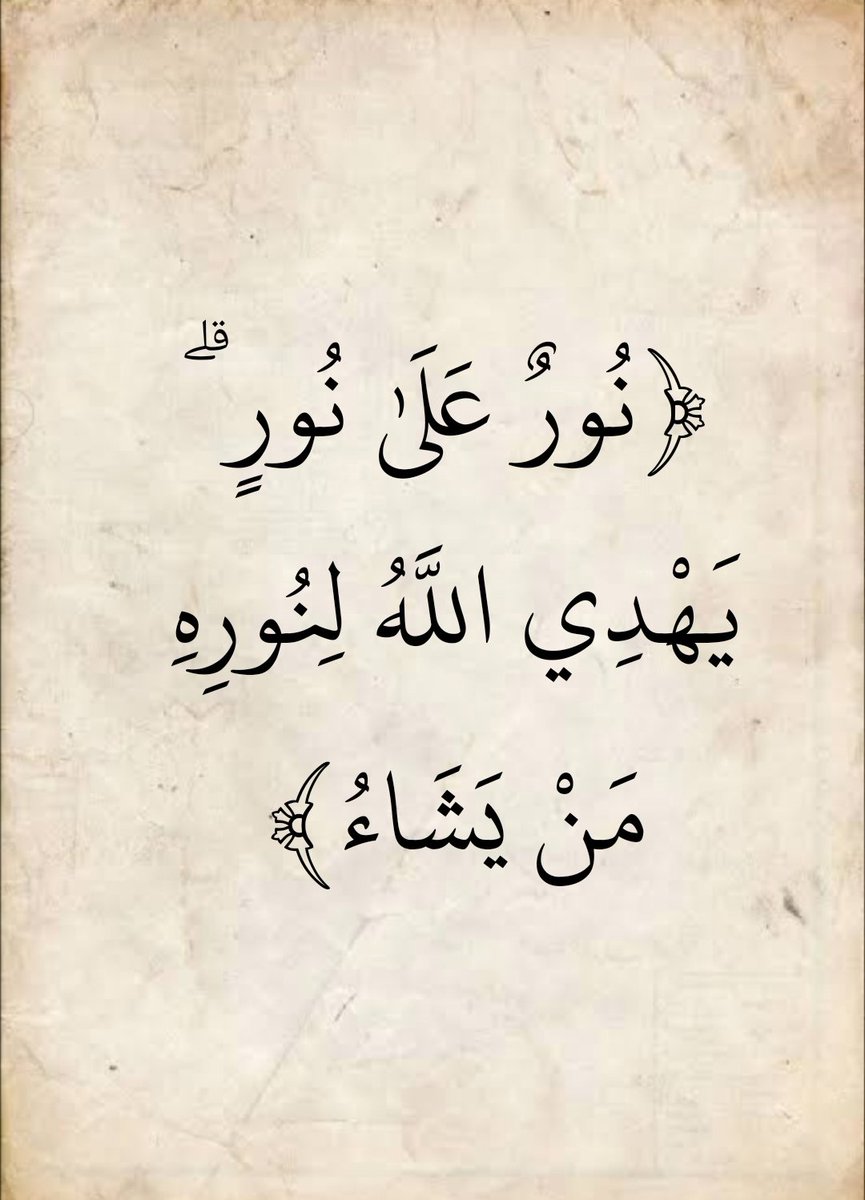 ﴿نُورٌ عَلَىٰ نُورٍ ۗ
يَهْدِي اللَّهُ لِنُورِهِ
مَنْ يَشَاءُ﴾